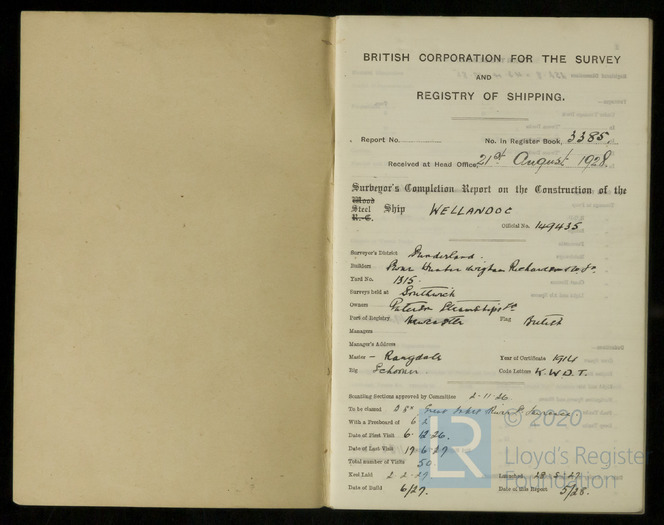 BRITISH CORPORATION FOR THE SURVEY
AND
REGISTRY OF SHIPPING.
Report No. No. in Register Book, 3385
Received at Head Office, 21st August 1928
Surveyor's Completion Report on the Construction of the
Wood
Steel Ship WELLANDOC
R.C.
Official No. 149435
Surveyor's District Sunderland.
Builders Swan Hunter Wigham Richardson & Co Ld.
Yard No. 1315.
Surveys held at Southwick
Owners Paterson Steamships Ld
Port of Registry Newcastle Flag British
Managers
Manager's Address
Master — Rangdale Year of Certificate 1914
Rig Schooner Code Letters K.W.D.T.
Scantling Sections approved by Committee 2-11-26
To be classed Great Lakes River St Lawrence
With a Freeboard of
Date of First Visit 6-12-26.
Date of Last Visit 19-5-27
Total number of Visits 50
Keel Laid 2-2-27 Launched 29-5-27
Date of Build 6/27. Date of this Report 5/28.
LR
© 2020
Lloyd's Register
Foundation